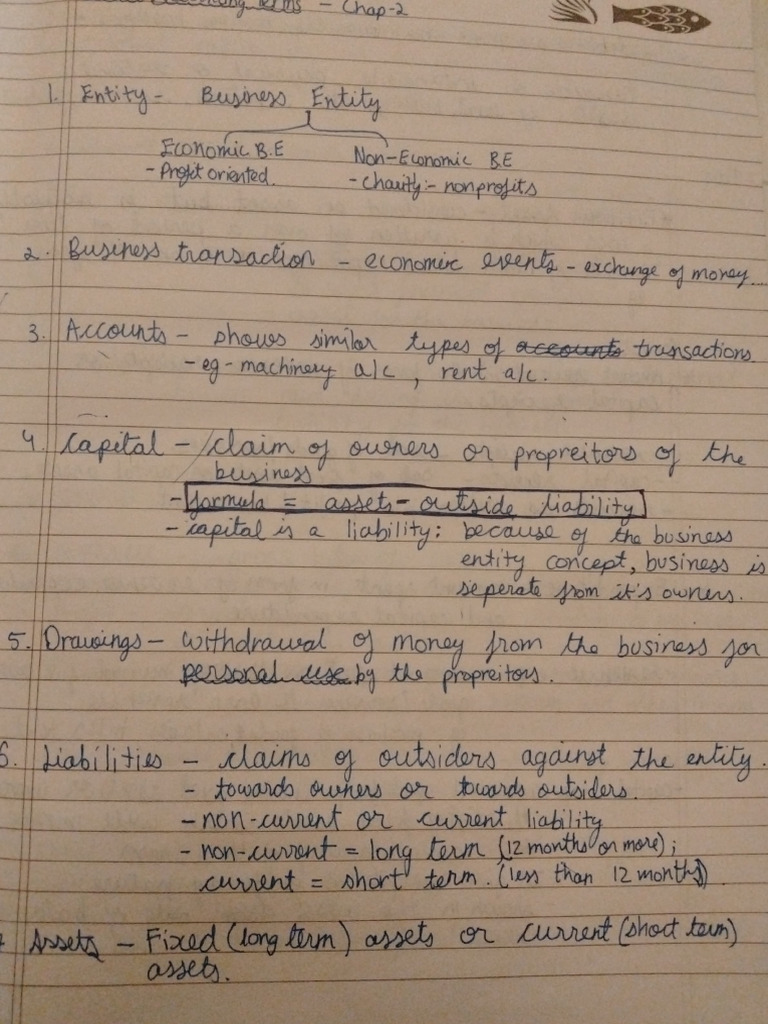 - Chap-2
1. Entity - Business Entity
Economic B.E Non-Economic B.E
- Profit oriented. - Charity:- nonprofits
2. Business transaction - economic events - exchange of money....
3. Accounts - shows similar types of accounts transactions.
- eg - machinery a/c , rent a/c.
4. Capital - claim of owners or propreitors of the
business
- formula = assets - outside liability
- capital is a liability: because of the business
entity concept, business is
seperate from it's owners.
5. Drawings - withdrawal of money from the business for
personal use by the propreitors.
6. Liabilities - claims of outsiders against the entity.
- towards owners or towards outsiders.
- non-current or current liability
- non-current = long term (12 months or more);
current = short term. (less than 12 months)
Assets - Fixed (long term) assets or current (short term)
assets.